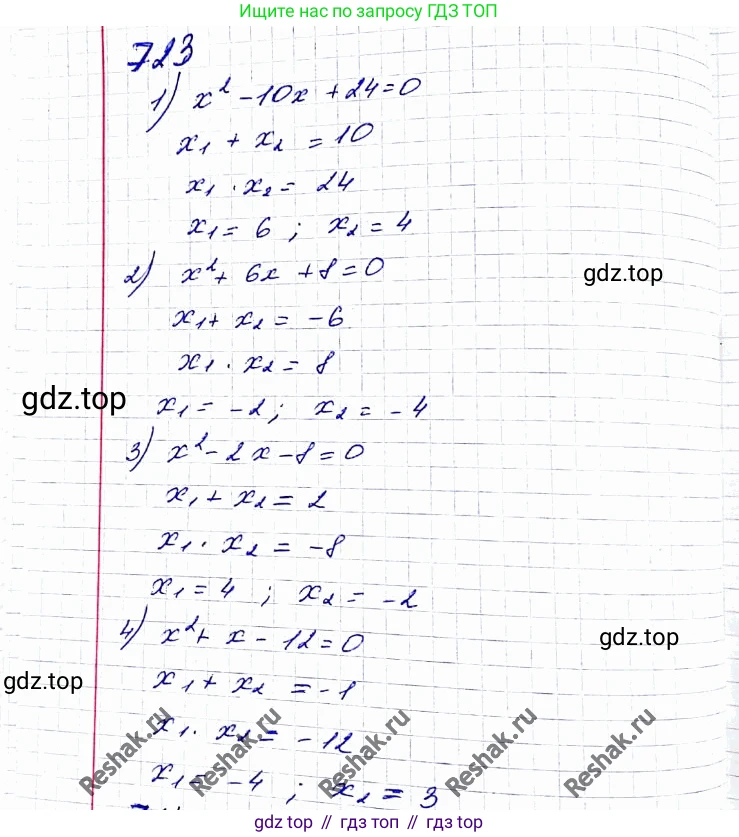 Ищите нас по запросу ГДЗ ТОП
723
1) x² - 10x + 24 = 0
x₁ + x₂ = 10
x₁ · x₂ = 24
x₁ = 6 ; x₂ = 4
2) x² + 6x + 8 = 0
gdz.top
x₁ + x₂ = -6
x₁ · x₂ = 8
gdz.top
x₁ = -2 ; x₂ = -4
3) x² - 2x - 8 = 0
x₁ + x₂ = 2
x₁ · x₂ = -8
x₁ = 4 ; x₂ = -2
4) x² + x - 12 = 0
gdz.top
x₁ + x₂ = -1
gdz.top
x₁ · x₂ = -12
Reshak.ru Reshak.ru Reshak.ru Reshak.ru Reshak.ru
x₁ = -4 ; x₂ = 3
gdz.top // гдз топ // gdz top // гдз top